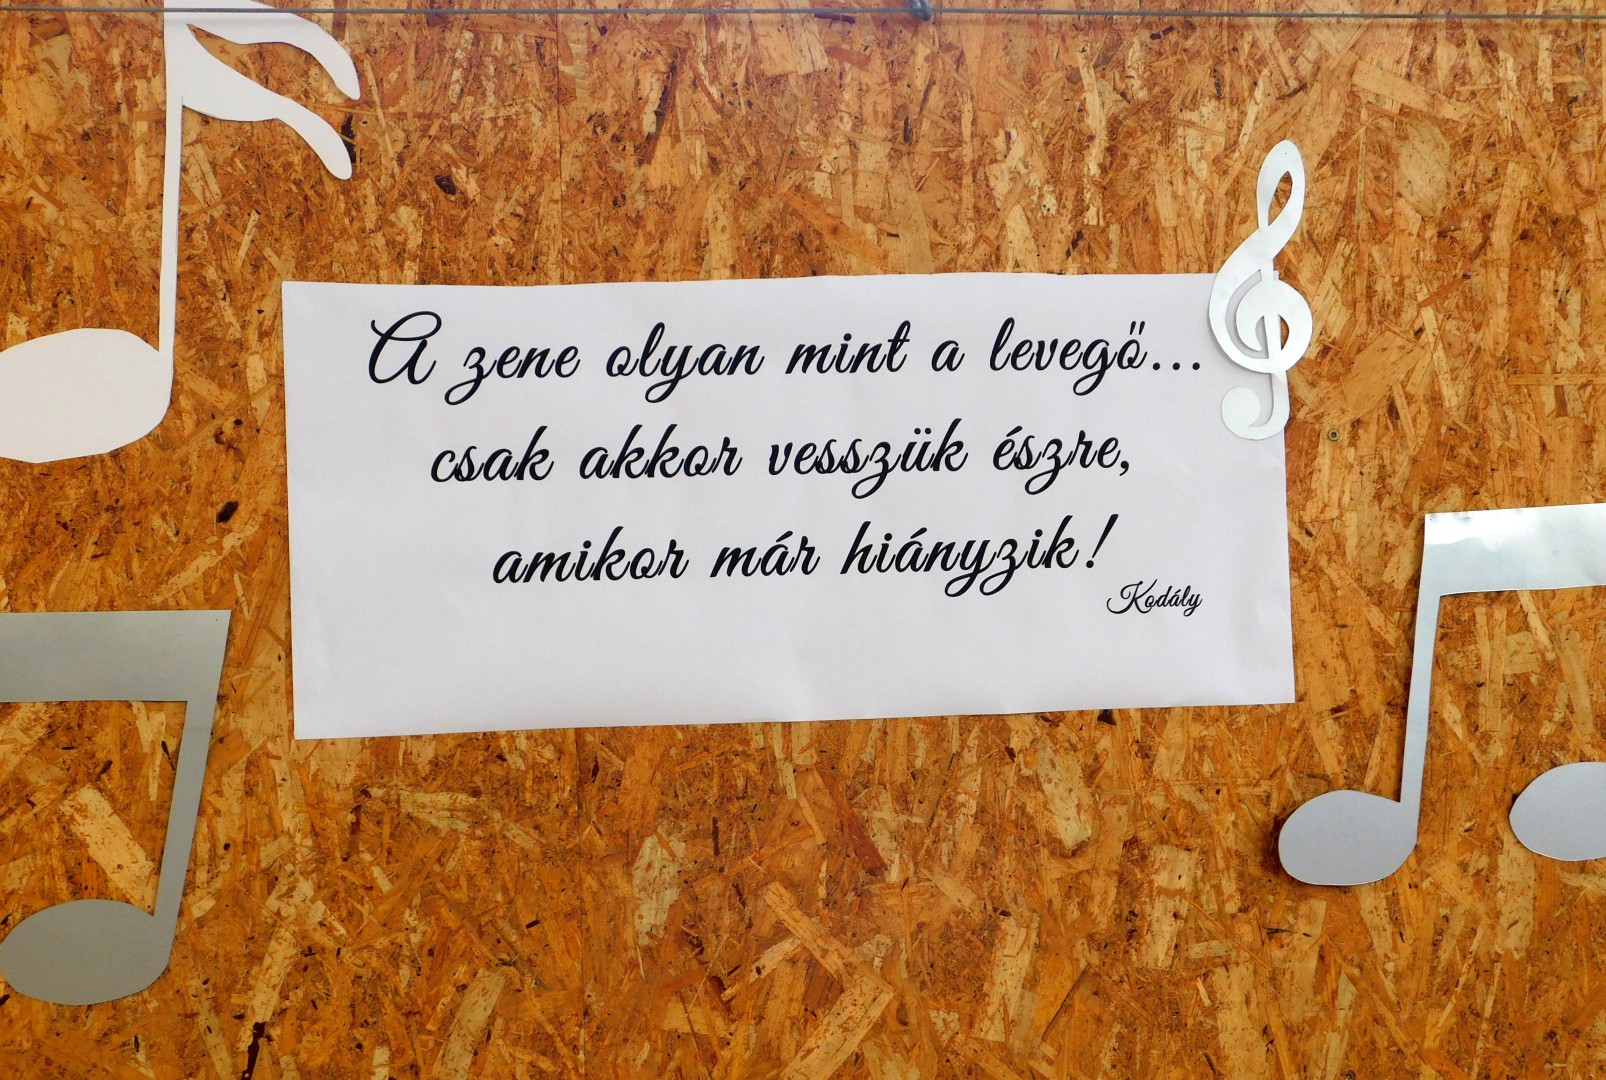 A zene olyan mint a levegő...
csak akkor vesszük észre,
amikor már hiányzik!
Kodály